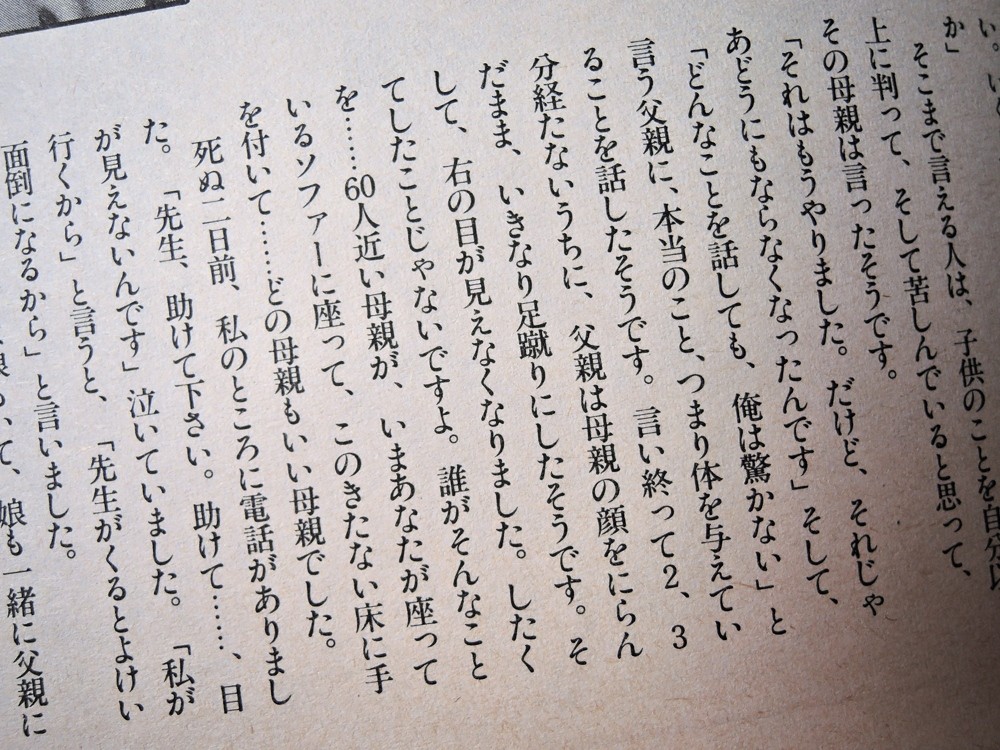 い。い
か」
そこまで言える人は、子供のことを自分以
上に判って、そして苦しんでいると思って、
その母親は言ったそうです。
「それはもうやりました。だけど、それじゃ
あどうにもならなくなったんです」そして、
「どんなことを話しても、俺は驚かない」と
言う父親に、本当のこと、つまり体を与えてい
ることを話したそうです。言い終って2、3
分経たないうちに、父親は母親の顔をにらん
だまま、いきなり足蹴りにしたそうです。そ
して、右の目が見えなくなりました。したく
てしたことじゃないですよ。誰がそんなこと
を……60人近い母親が、いまあなたが座って
いるソファーに座って、このきたない床に手
を付いて……どの母親もいい母親でした。
死ぬ二日前、私のところに電話がありまし
た。「先生、助けて下さい。助けて……、目
が見えないんです」泣いていました。「私が
行くから」と言うと、「先生がくるとよけい
面倒になるから」と言いました。
て、娘も一緒に父親に